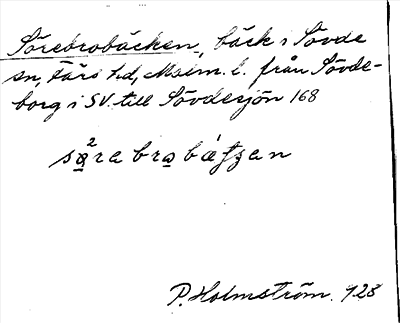 Sörebrobäcken, bäck i Sövde
sn, Färs hd, Msim. l. från Sövde-
borg i SV. till Sövdesjön 168
P. Holmström. 928